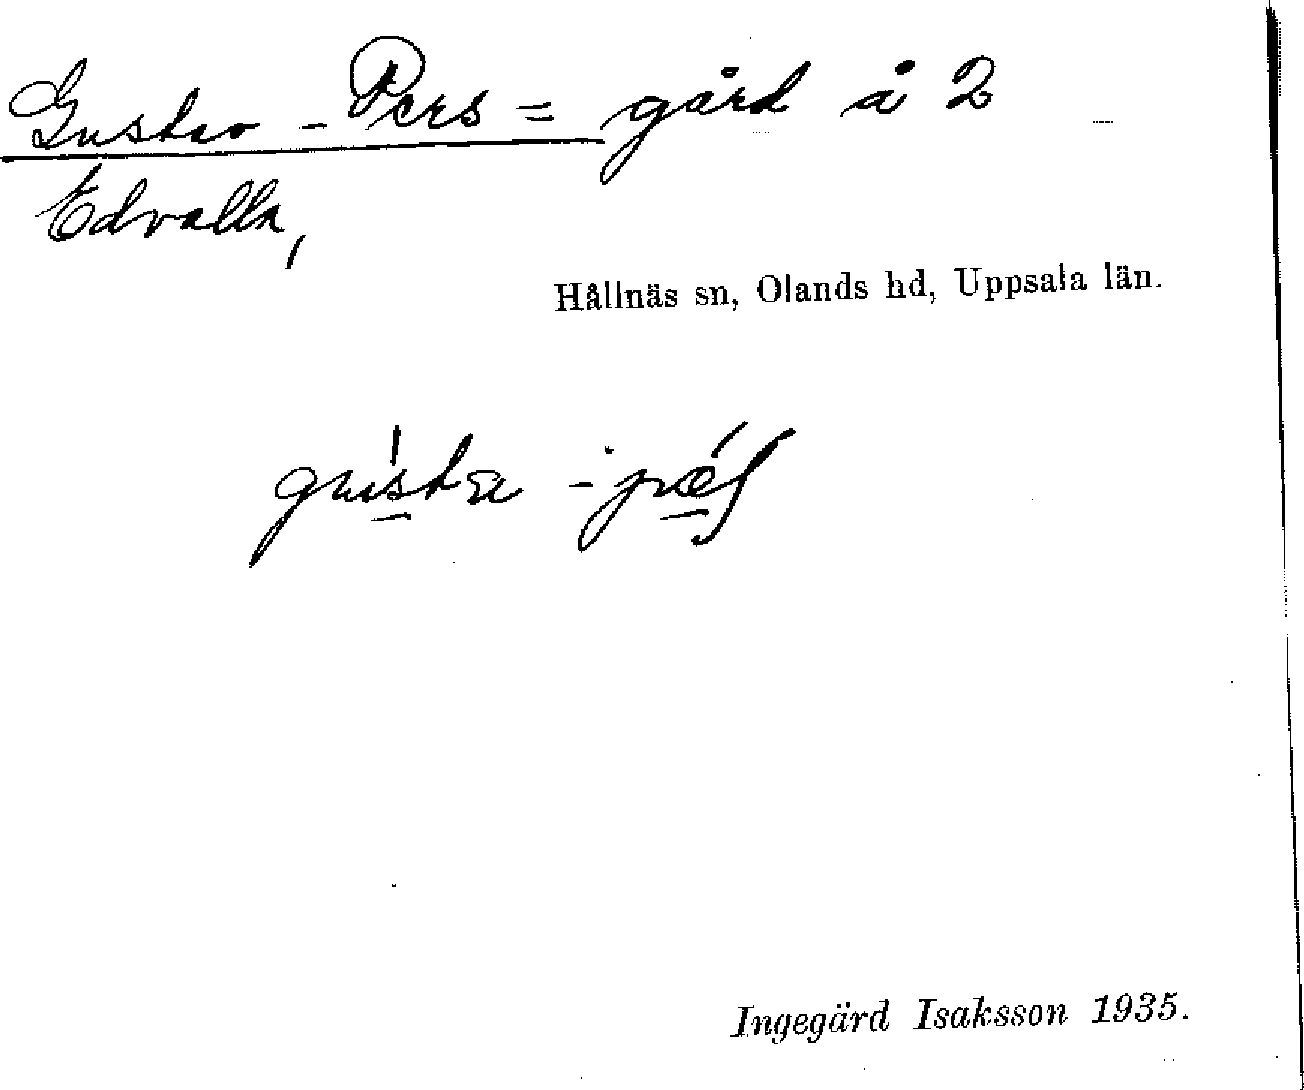 Gustav - Pers = gård å 2
Edvalla,
Hållnäs sn, Olands hd, Uppsala län.
Ingegärd Isaksson 1935.